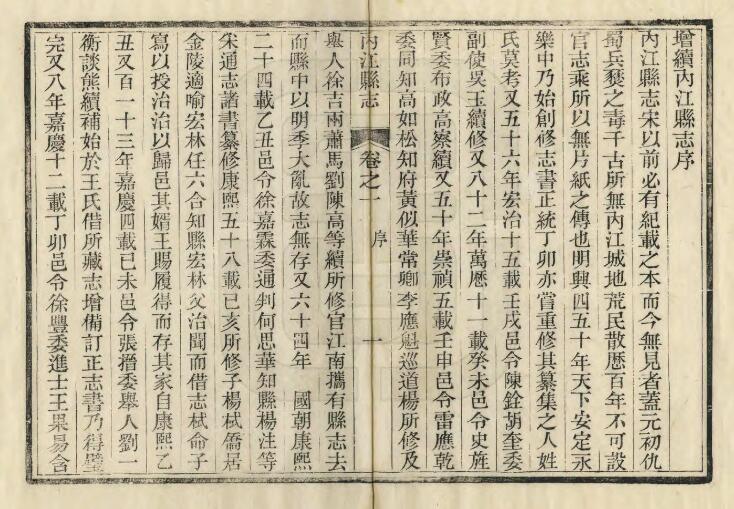 增續內江縣志序
內江縣志宋以前必有紀載之本而今無見者蓋元初仇
蜀兵燹之毒千古所無內江城地荒民散歷百年不可設
官志乘所以無片紙之傳也明興四五十年天下安定永
樂中乃始創修志書正統丁卯亦嘗重修其纂集之人姓
氏莫考又五十六年宏治十五載壬戌邑令陳銓胡奎委
副使吳玉續修又八十二年萬歷十一載癸未邑令史旌
賢委布政高察續又五十年崇禎五載壬申邑令雷應乾
委同知高如松知府黃似華常卿李應魁巡道楊所修及
內江縣志 卷之一 序 一
舉人徐吉雨蕭馬劉陳高等續所修官江南攜有縣志去
而縣中以明季大亂故志無存又六十四年 國朝康熙
二十四載乙丑邑令徐嘉霖委通判何思華知縣楊注等
宋通志諸書纂修康熙五十八載己亥所修子楊栻僑居
金陵適喻宏林任六合知縣宏林父治聞而借志栻命子
寫以授治治以歸邑其婿王賜履得而存其家自康熙乙
丑又百一十三年嘉慶四載己未邑令張搢委舉人劉一
衡談熊續補始於王氏借所藏志增備訂正志書乃得璧
完又八年嘉慶十二載丁卯邑令徐豐委進士王果易含